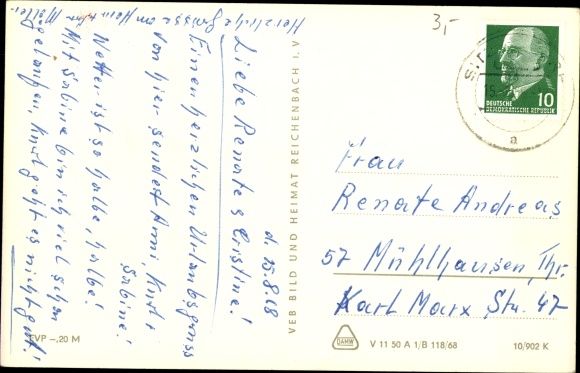 Herzliche Grüsse an Heim
d. 15.8.68
Liebe Renate & Cristine!
Einen herzlichen Urlaubsgruss
von hier sendet Anni, Knut &
Sabine!
Wetter ist so halbe, halbe!
Mit Sabine bin ich viel schon
gelaufen, Knut geht es nicht gut!
EVP –,20 M
VEB BILD UND HEIMAT REICHENBACH I. V
3,-
DEUTSCHE
DEMOKRATISCHE REPUBLIK
10
a
Frau
Renate Andreas
57 Mühlhausen, Thr.
Karl Marx Str. 47
DAMW
V 11 50 A 1/B 118/68
10/902 K